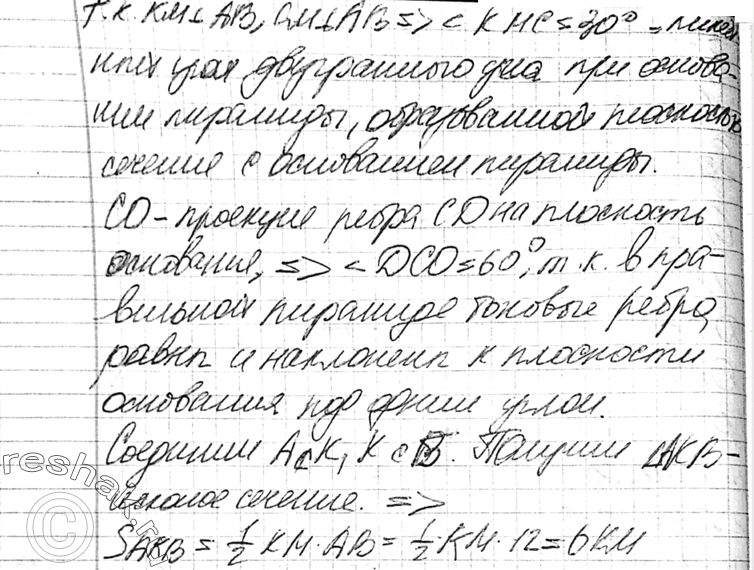 Т.к. KM⊥AB, CM⊥AB => <KMC=30° - линей-
ных угла двугранного угла при основа-
нии пирамиды, образованной плоскостью
сечение с основанием пирамиды.
CO - проекция ребра CD на плоскость
основания, => <DCO=60°, т.к. в пра-
вильной пирамиде боковые ребра
равны и наклонены к плоскости
основания под одним углом.
Соединим A с K, K с B. Получим ΔAKB -
искомое сечение. =>
S_AKB = 1/2 KM·AB = 1/2·KM·12 = 6KM
reshak.ru